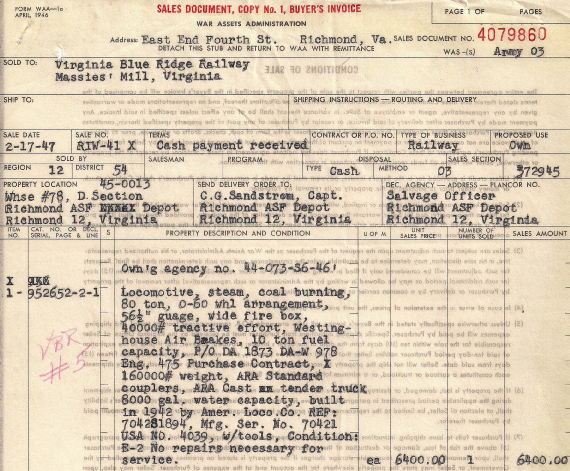 FORM WAA—1a
APRIL, 1946
SALES DOCUMENT, COPY No. 1, BUYER'S INVOICE
WAR ASSETS ADMINISTRATION
PAGE 1 OF PAGES
Address: East End Fourth St. Richmond, Va.
DETACH THIS STUB AND RETURN TO WAA WITH REMITTANCE
SALES DOCUMENT NO. 4079860
WAS—(S) Army 03
SOLD TO: Virginia Blue Ridge Railway
Massies' Mill, Virginia
CONDITIONS OF SALE
SHIP TO:
SHIPPING INSTRUCTIONS—ROUTING AND DELIVERY
SALE DATE SALE NO. TERMS CONTRACT OR P.O. NO. TYPE OF BUSINESS PROPOSED USE
2-17-47 RIW-41 X Cash payment received Railway Own
SOLD BY SALESMAN PROGRAM DISPOSAL SALES SECTION
REGION 12 DISTRICT 54 TYPE Cash METHOD 03 372945
PROPERTY LOCATION 45-0013 SEND DELIVERY ORDER TO: DEC. AGENCY—ADDRESS—PLANCOR NO.
Whse #78, D.Section C.G.Sandstrom, Capt. Salvage Officer
Richmond ASF Depot Richmond ASF Depot Richmond ASF Depot
Richmond 12, Virginia Richmond 12, Virginia Richmond 12, Virginia
ITEM NO. CAT. NO. OR DECL. SERIAL, PAGE & LINE S PROPERTY DESCRIPTION AND CONDITION U OF M UNIT SALES PRICE NUMBER OF UNITS SOLD SALES AMOUNT
Own'g agency no. 44-073-S6-46'
1 - 952652-2-1 Locomotive, steam, coal burning,
80 ton, 0-60 whl arrangement,
56½" guage, wide fire box,
40000# tractive effort, Westing-
house Air Brakes, 10 ton fuel
capacity, P/O DA 1873 DA-W 978
Eng. 475 Purchase Contract, X
160000# weight, ARA Standard
couplers, ARA Cast tender truck
8000 gal, water capacity, built
in 1942 by Amer. Loco.Co. REF:
704281894, Mfg. Ser. No. 70421
USA NO. 4039, w/tools, Condition:
E-2 No repairs necessary for
service. ea 6400.00 1 6400.00
VBR
#5